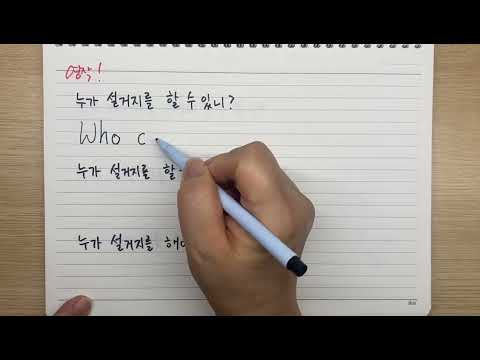 영작!
누가 설거지를 할 수 있니?
Who c
누가 설거지를 할
누가 설거지를